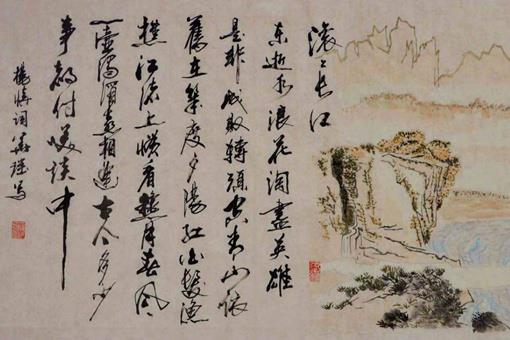 滚〻长江
东逝水浪花淘盡英雄
是非成败转头空青山依
舊在几度夕阳红白发渔
樵江渚上惯看秋月春风
一壶浊酒喜相逢古今多少
事都付笑谈中
楊慎词 写